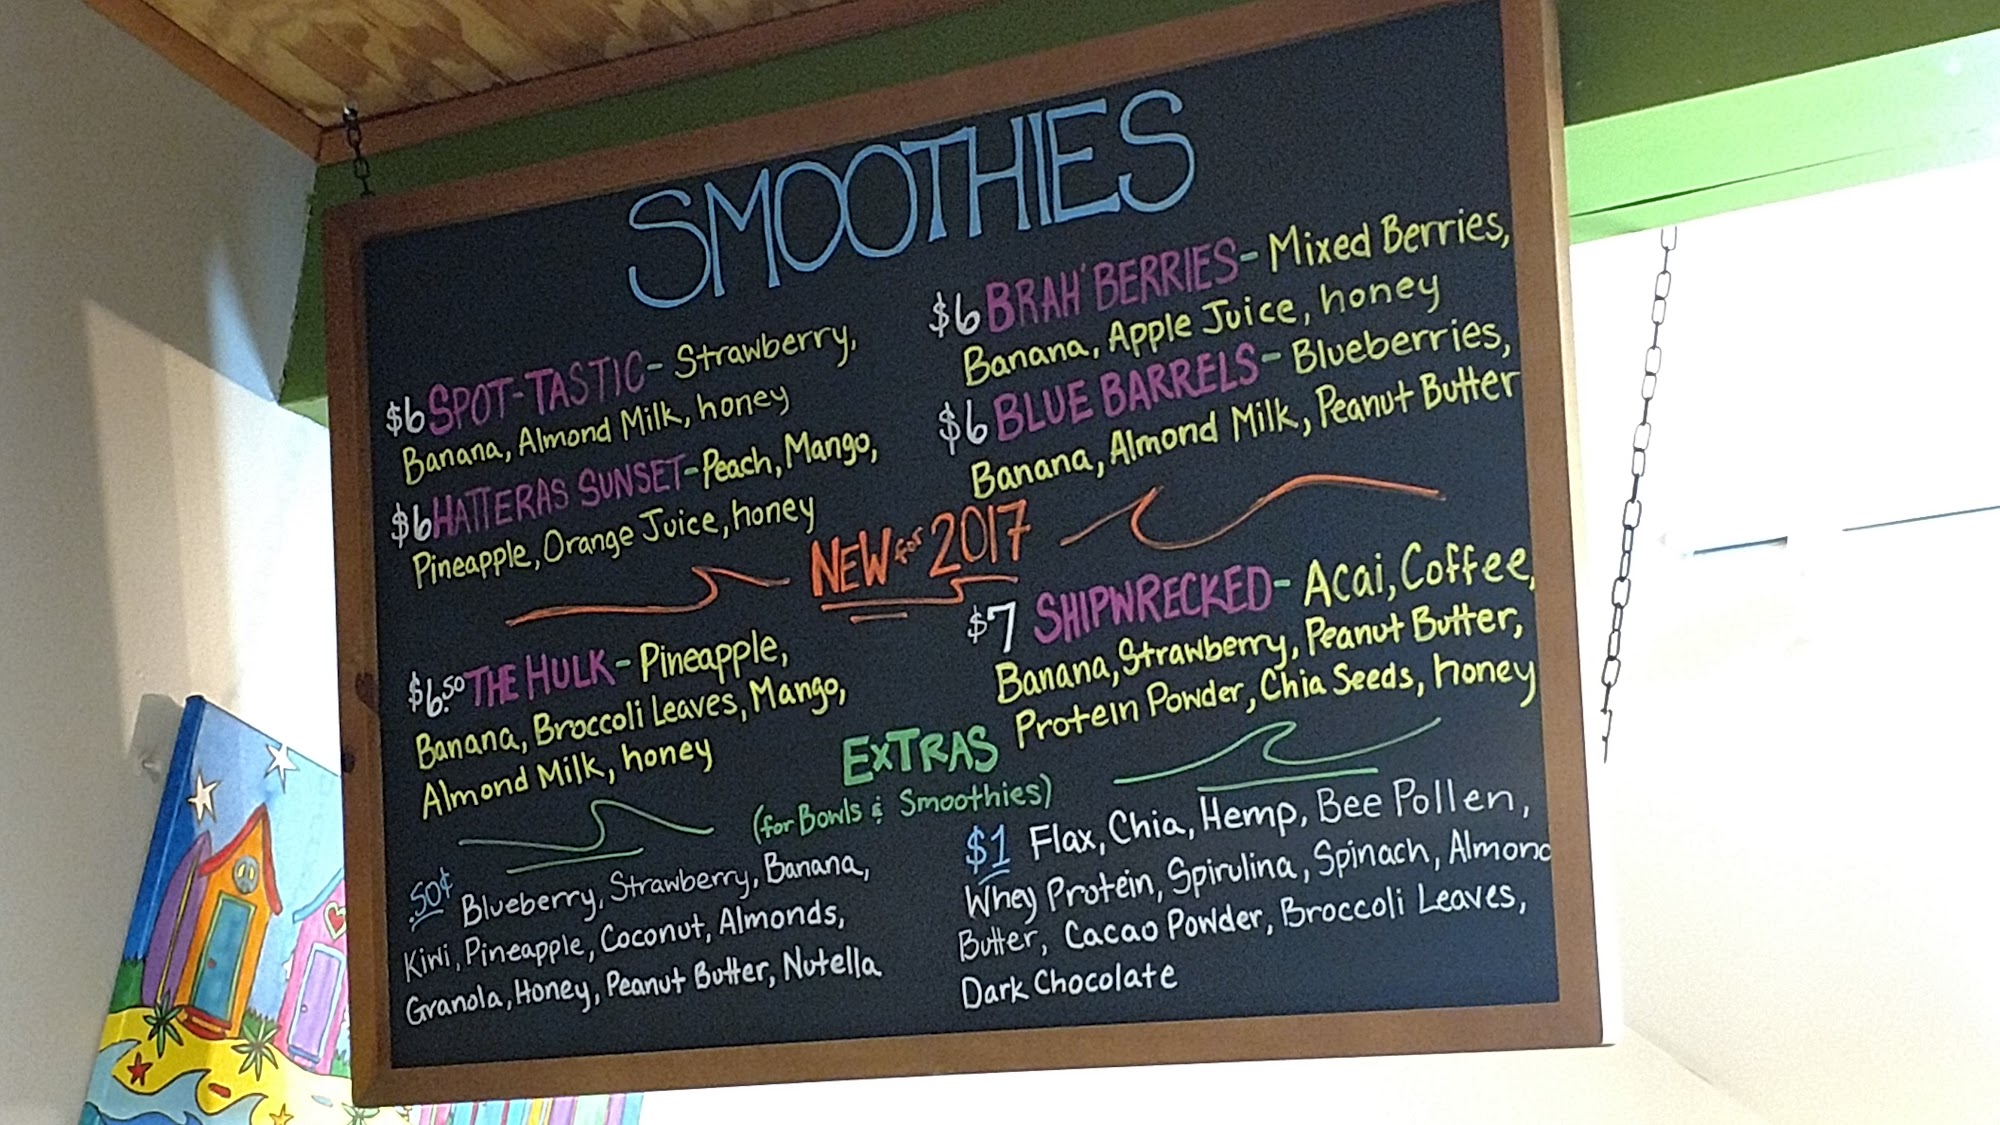 SMOOTHIES
$6 SPOT-TASTIC- Strawberry,
Banana, Almond Milk, honey
$6 HATTERAS SUNSET- Peach, Mango,
Pineapple, Orange Juice, honey
$6 BRAH'BERRIES- Mixed Berries,
Banana, Apple Juice, honey
$6 BLUE BARRELS- Blueberries,
Banana, Almond Milk, Peanut Butter
NEW for 2017
$6.50 THE HULK- Pineapple,
Banana, Broccoli Leaves, Mango,
Almond Milk, honey
$7 SHIPWRECKED- Acai, Coffee,
Banana, Strawberry, Peanut Butter,
Protein Powder, Chia Seeds, honey
EXTRAS
(for Bowls & Smoothies)
.50¢ Blueberry, Strawberry, Banana,
Kiwi, Pineapple, Coconut, Almonds,
Granola, Honey, Peanut Butter, Nutella
$1 Flax, Chia, Hemp, Bee Pollen,
Whey Protein, Spirulina, Spinach, Almond
Butter, Cacao Powder, Broccoli Leaves,
Dark Chocolate